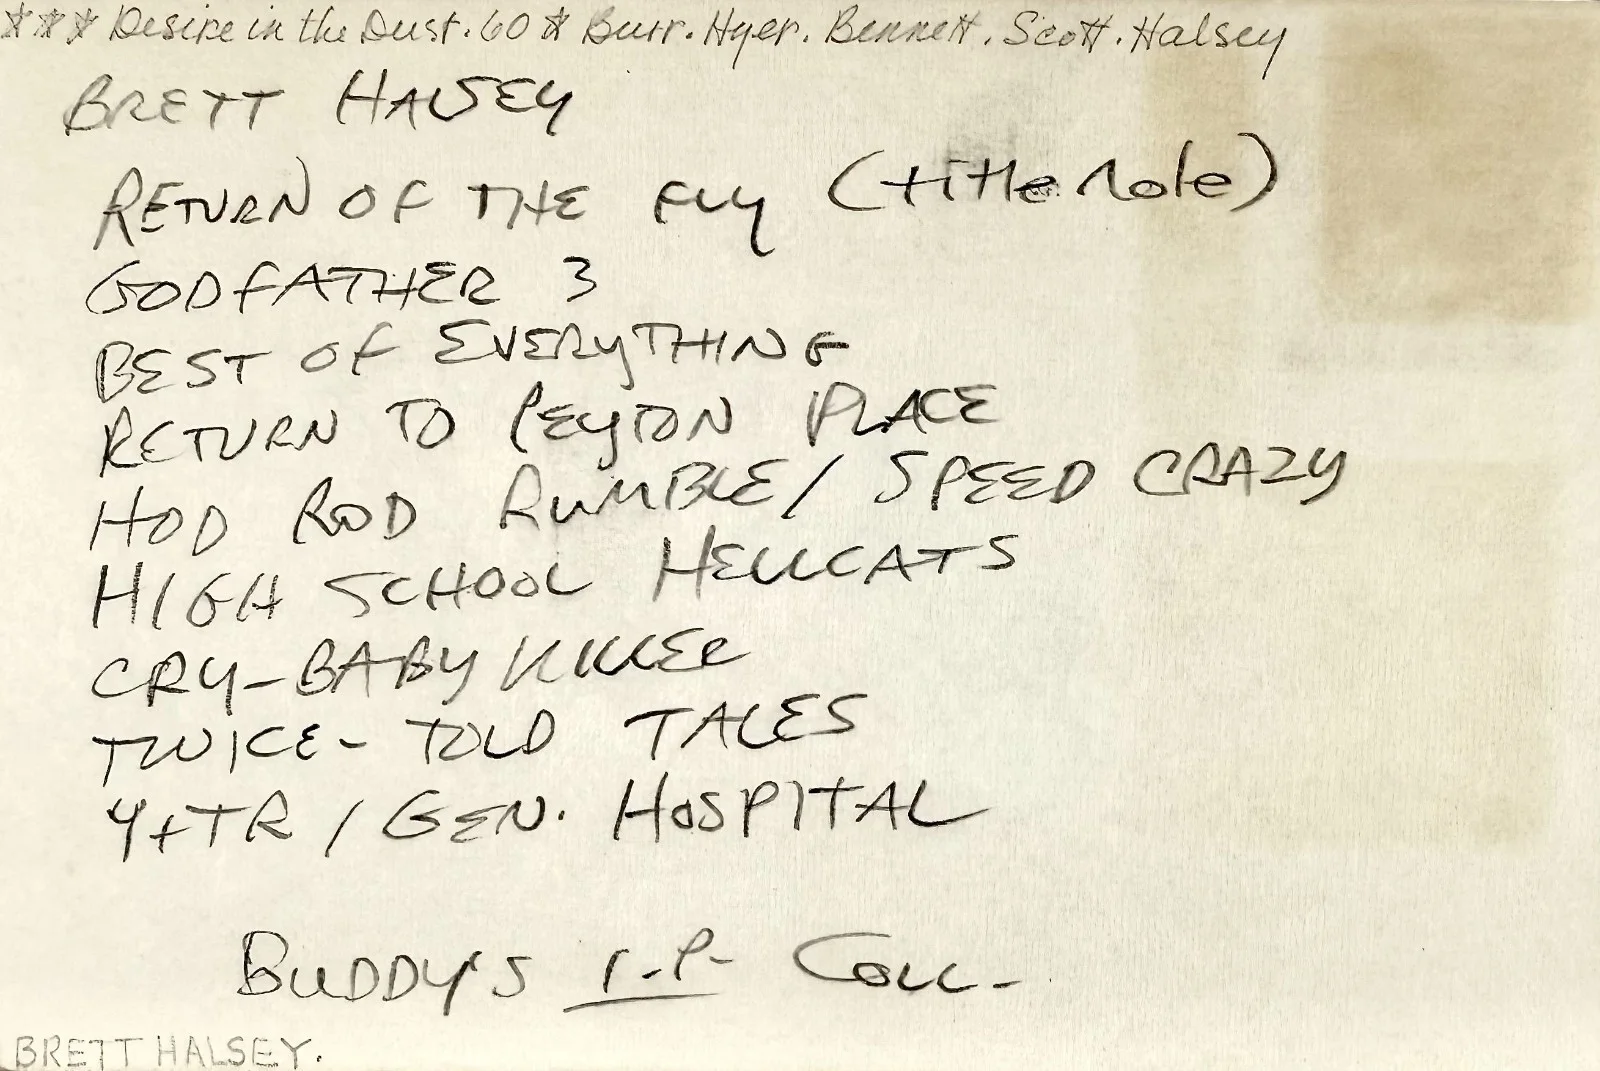 *** Desire in the Dust. 60 * Burr. Hyer. Bennett. Scott. Halsey
BRETT HALSEY
RETURN OF THE FLY (title role)
GODFATHER 3
BEST OF EVERYTHING
RETURN TO PEYTON PLACE
HOD ROD RUMBLE / SPEED CRAZY
HIGH SCHOOL HELLCATS
CRY-BABY KILLER
TWICE-TOLD TALES
Y+TR / GEN. HOSPITAL
BUDDY'S I.P. COLL.
BRETT HALSEY.